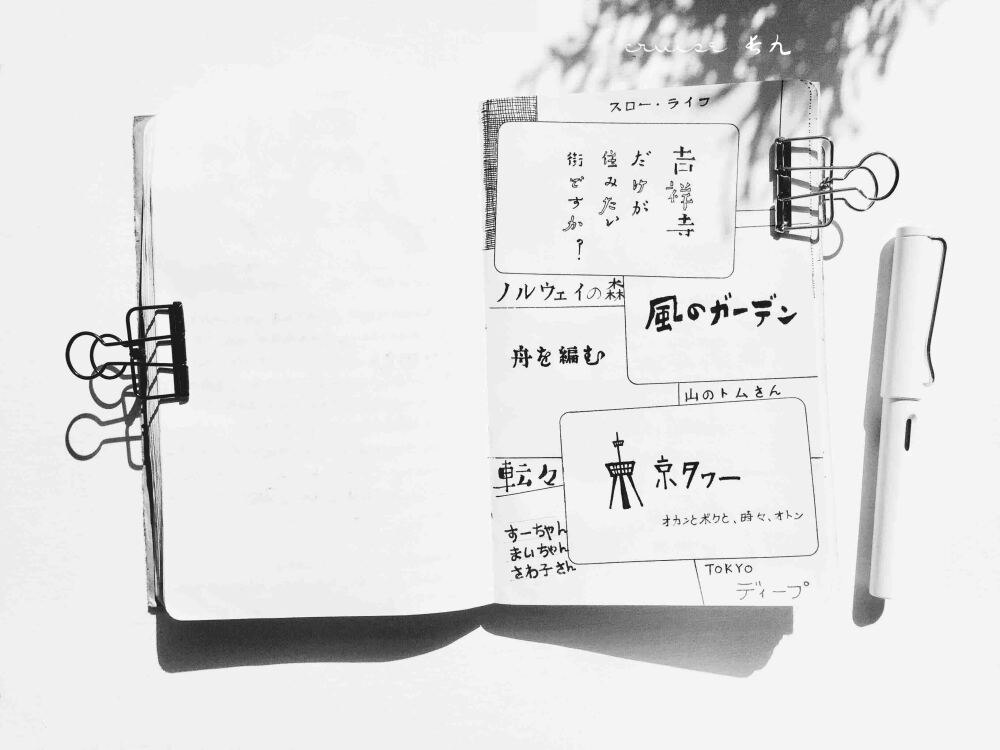 cruise あん
スロー・ライフ
吉祥寺
だけが
住みたい
街ですか?
ノルウェイの森
風のガーデン
舟を編む
山のトムさん
転々
京タワー
オカンとボクと、時々、オトン
すーちゃん
まいちゃん
さわ子さん
TOKYO
ディープ